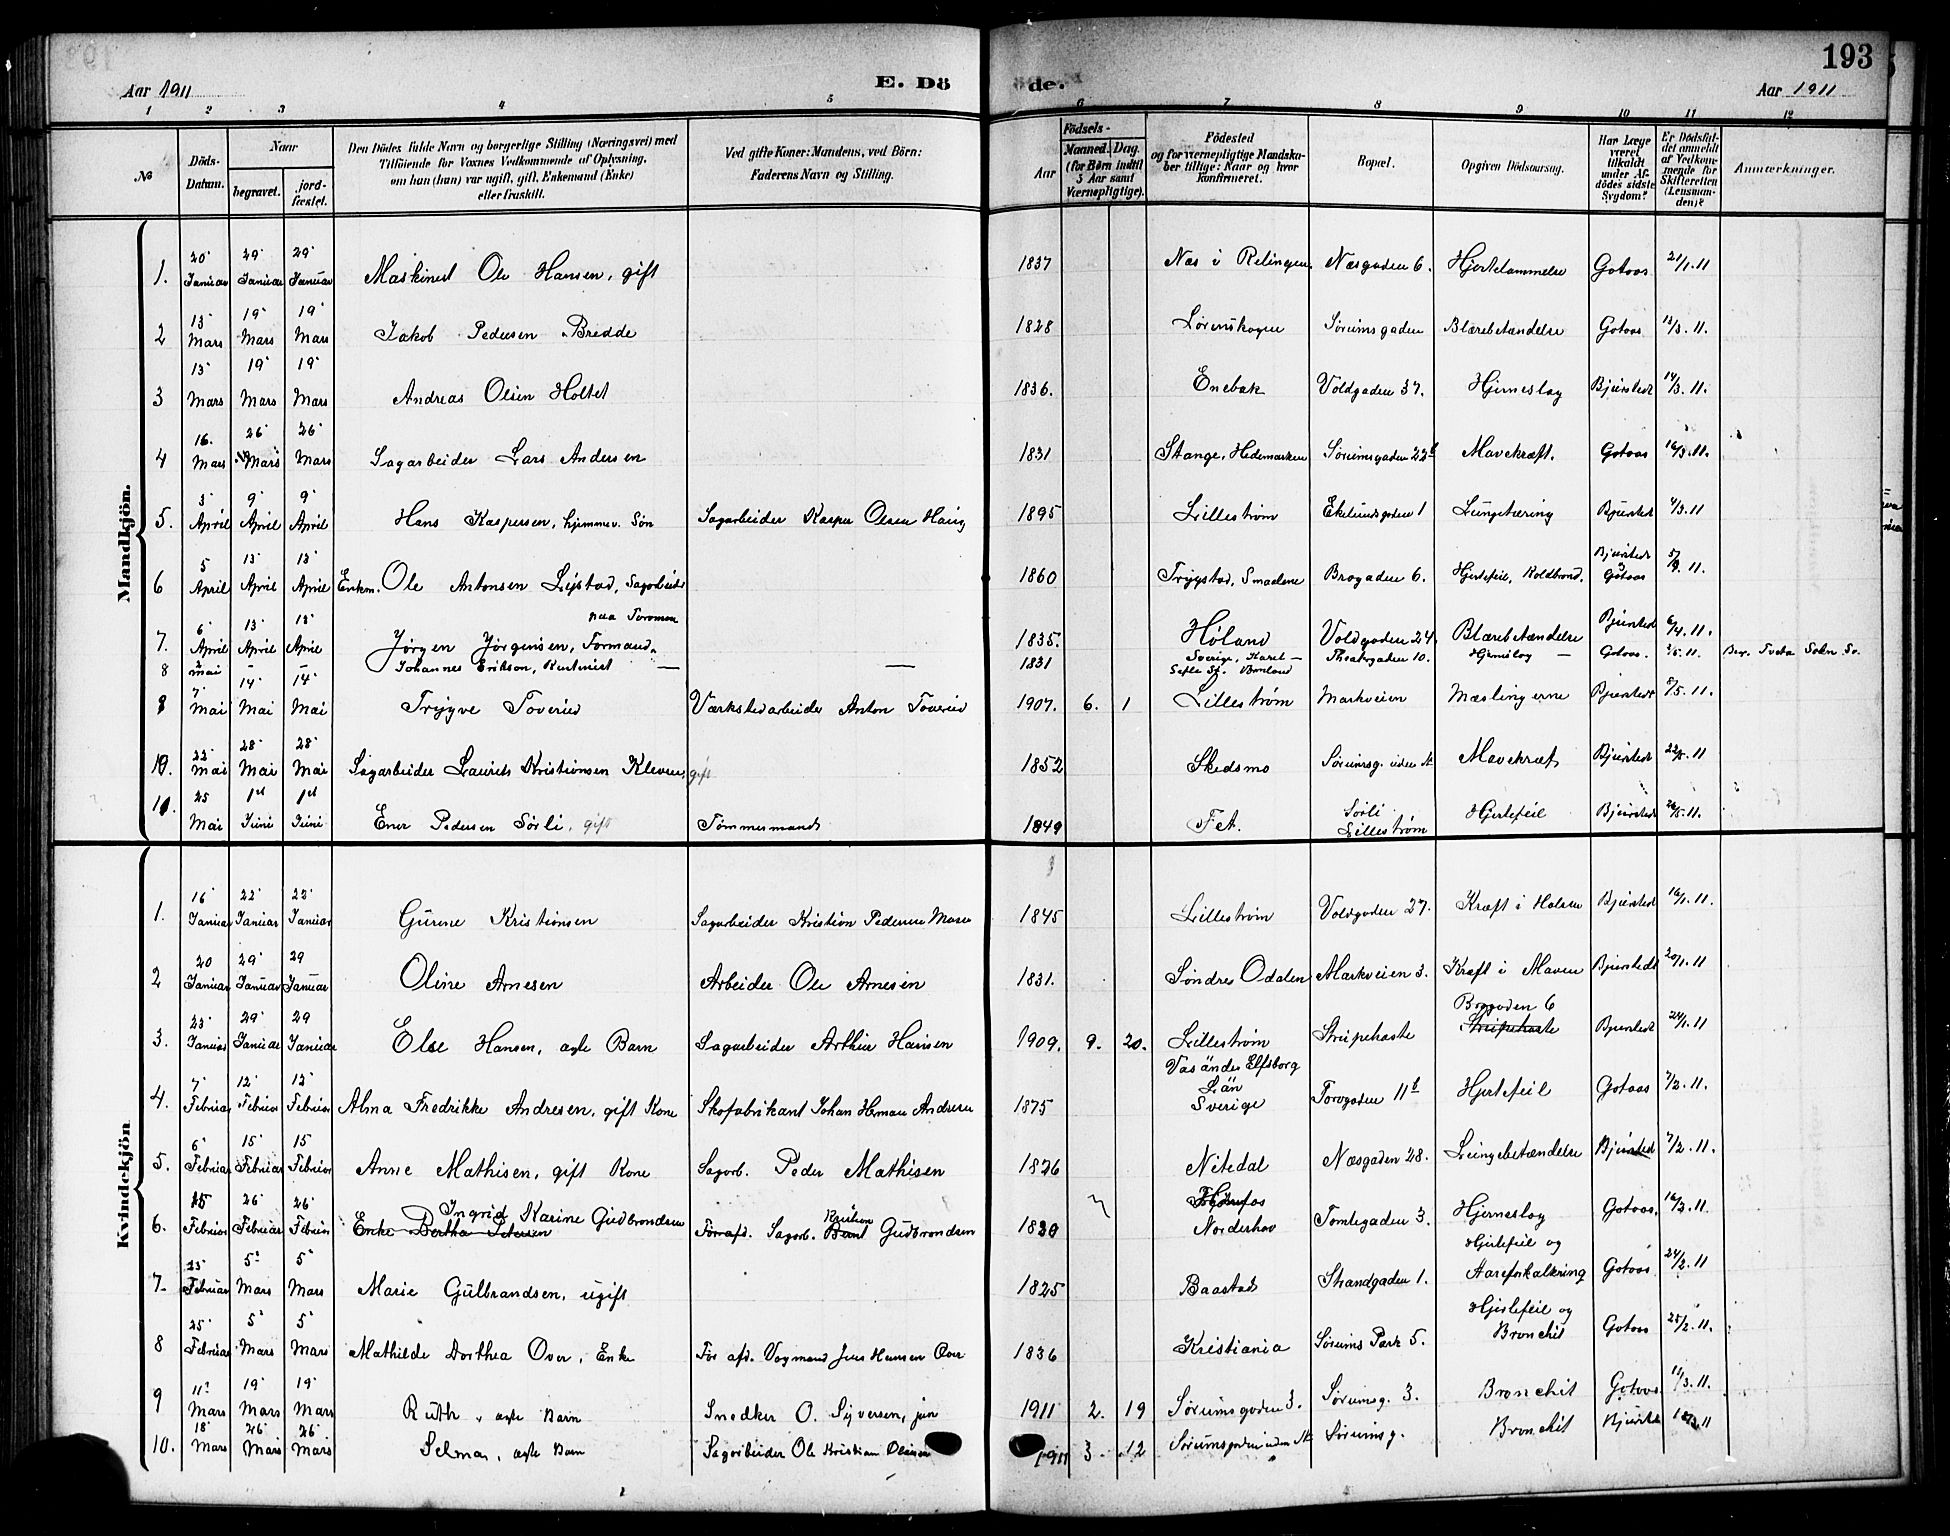 193
Aar 1911
E. Dö
de.
Aar 1911
1 2 3 4 5 6 7 8 9 10 11 12
No
Döds-Datum.
Naar
begravet.
jord-fæstet.
Den Dödes fulde Navn og borgerlige Stilling (Næringsvei) med
Tilföiende for Voxnes Vedkommende af Oplysning,
om han (hun) var ugift, gift, Enkemand (Enke)
eller fraskilt.
Ved gifte Koner: Mandens, ved Börn:
Faderens Navn og Stilling.
Födsels-
Aar
Maaned. Dag.
(for Börn indtil
5 Aar samt
Værnepligtige).
Födested
og for værnepligtige Mandska-
ber tillige: Naar og hvor
konfirmeret.
Bopæl.
Opgiven Dödsaarsag.
Har Læge
været
tilkaldt
under Af-
dödes sidste
Sygdom?
Er Dödsfal-
det anmeldt
af Vedkom-
mende for
Skifteretten
(Lensman-
den)?
Anmærkninger.
Mandkjön.
1. 20 Januar 29 Januar 29 Januar Maskinist Ole Hansen, gift 1837 Næs i Relingen Næsgaden 6. Hjertelammelse Gotaas 21/1.11
2 13 Mars 19 Mars 19 Mars Jakob Pedersen Bredde 1828 Lørenskogen Sørumsgaden Blærebetændelse Gotaas 13/3.11.
3 13 Mars 19 Mars 19 Mars Andreas Olsen Holtet 1836. Enebak Voldgaden 37. Hjerneslag Bjürstedt 14/3.11.
4 16. Mars 26 Mars 26 Mars Sagarbeider Lars Andersen 1831 Stange, Hedemarken Sørumsgaden 22b Mavekræft. Gotaas 16/3.11.
5. 3 April 9 April 9 April Hans Kaspersen, hjemmev. Søn Sagarbeider Kasper Olsen Haug 1895 Lillestrøm Ekelundsgaden 1 Lungetæring Bjürstedt 4/3.11
6 5 April 13 April 13 April Enkm. Ole Antonsen Lystad, Sagarbeider 1860 Trygstad, Smaalene Brogaden 6. Hjertefeil, Koldbrand. Bjürstedt Gotaas 5/4.11.
7. 6 April 13 April 13 April Jørgen Jørgensen, Formand. 1835. Høland Voldgaden 24. Blærebetændelse Bjürstedt 6/4.11.
8 2 mai - - Johannes Erikson, Rentenist — — 1831 Sverige, Theatergaden 10. Hjerneslag — Gotaas. 2/5.11.
7 Mai 14 Mai 14 Mai Trygve Toverud Værkstedarbeider Anton Toverud 1907. 6. 1 Lillestrøm Markveien Mæslingerne Bjürstedt 8/5.11.
10. 22 Mai 28 Mai 28 Mai Sagarbeider Laurits Kristiansen Kleven, gift 1852 Skedsmo Sørumsg. uden No Mavekræft Bjürstedt 22/5.11
11. 25 Mai 1ste Juni 1ste Juni Ener Pedersen Sörli, gift Tømmermand 1849 Fet. Sörli Lillestrøm Hjertefeil Bjürstedt 26/5.11.
Kvindekjön
1. 16 Januar 22 Januar 22 Januar Gurine Kristiansen Sagarbeider Kristian Pedersen Moen 1845 Lillestrøm Voldgaden 27. Kræft i Halsen Bjürstedt 16/1.11.
2 20 Januar 29 Januar 29 Januar Oline Arnesen Arbeider Ole Arnesen 1831. Søndre Odalen Markveien 3. Kræft i Maven Bjürstedt 20/1.11
3. 23 Januar 29 Januar 29 Januar Else Hansen, ægte Barn Sagarbeider Arthur Hansen 1909. 9. 20. Lillestrøm Strupehoste Brogaden 6 Strupehoste Bjürstedt 24/1.11
4. 7 Februar 12 Februar 12 Februar Alma Fredrikke Andresen, gift Kone Skofabrikant Johan Herman Andresen 1875 Vasänder Elfsborg Län Sverige Torvgaden 11b Hjertefeil Gotaas 7/2.11.
5. 6 Februar 15 Februar 15 Februar Anne Mathisen, gift Kone Sagarb. Peder Mathisen 1826 Nitedal Næsgaden 28. Lungebetændelse Bjürstedt 7/2.11.
6. 15 Februar 26 Februar 26 Februar Enke Bertha Petersen Ingrid Karine Gudbrandsen Forrafd. Sagarb. Bernt Kristian Gudbrandsen 1830 Norderhov Tomtegaden 3. Hjerneslag Gotaas. 16/2.11.
7. 23 Februar 5 Mars 5 Mars Marie Gulbrandsen, ugift 1825 Baastad Strandgaden 1. Hjertefeil og Aareforkalkning Gotaas. 24/2.11
8 25 Februar 5 Mars 5 Mars Mathilde Dorthea Over, Enke Før afd. Vogmand Jens Hansen Over 1836 Kristiania Sørums Park 5. Hjertefeil og Bronchit Gotaas 25/2.11.
9 11 Mars 19 Mars 19 Mars Ruth, ægte Barn Snedker O. Syversen, jun 1911 2. 19 Sørumsgaden 3. Sørumsg. 3. Bronchit Gotaas. 11/3.11.
10. 18 Mars 26 Mars 26 Mars Selma, ægte Barn Sagarbeider Ole Kristian Olsen 1911 3. 12 Sørumsgaden uden No Sørumsg. Bronchit Bjürstedt